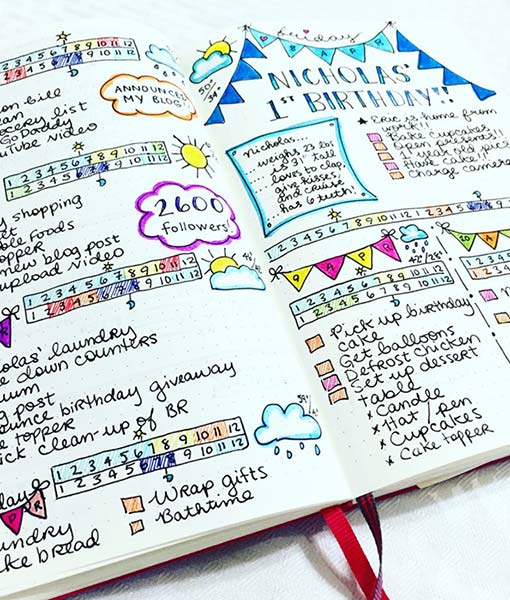 1 2 3 4 5 6 7 8 9 10 11 12
bill
list
GoDaddy
video
ANNOUNCE
MY BLOG!
50°
34°
1 2 3 4 5 6 7 8 9 10 11 12
1 2 3 4 5 6 7 8 9 10 11 12
shopping
foods
new blog post
upload video
2600
followers!
1 2 3 4 5 6 7 8 9 10 11 12
1 2 3 4 5 6 7 8 9 10 11 12
laundry
down counters
post
birthday giveaway
topper
clean-up of BR
1 2 3 4 5 6 7 8 9 10 11 12
1 2 3 4 5 6 7 8 9 10 11 12
P R
bread
Wrap gifts
Bathtime
friday
8 A P R
NICHOLAS'
1ST BIRTHDAY!!
nicholas...
weighs 23 lbs
is 31" tall
loves to clap,
give kisses,
and cruise
has 6 teeth
Eric is home from
work!!
Bake cupcakes
Open presents!!
1 year old pics
Have cake!!
Charge camera
1 2 3 4 5 6 7 8 9 10 11 12
9 A P R
42°/28°
1 2 3 4 5 6 7 8 9 10 11 12
1 2 3 4 5 6 7 8 9 10 11 12
Pick up birthday
cake
Get balloons
Defrost chicken
Set up dessert
table
x Candle
x Hat / Pen
x Cupcakes
x Cake topper
10 A P R